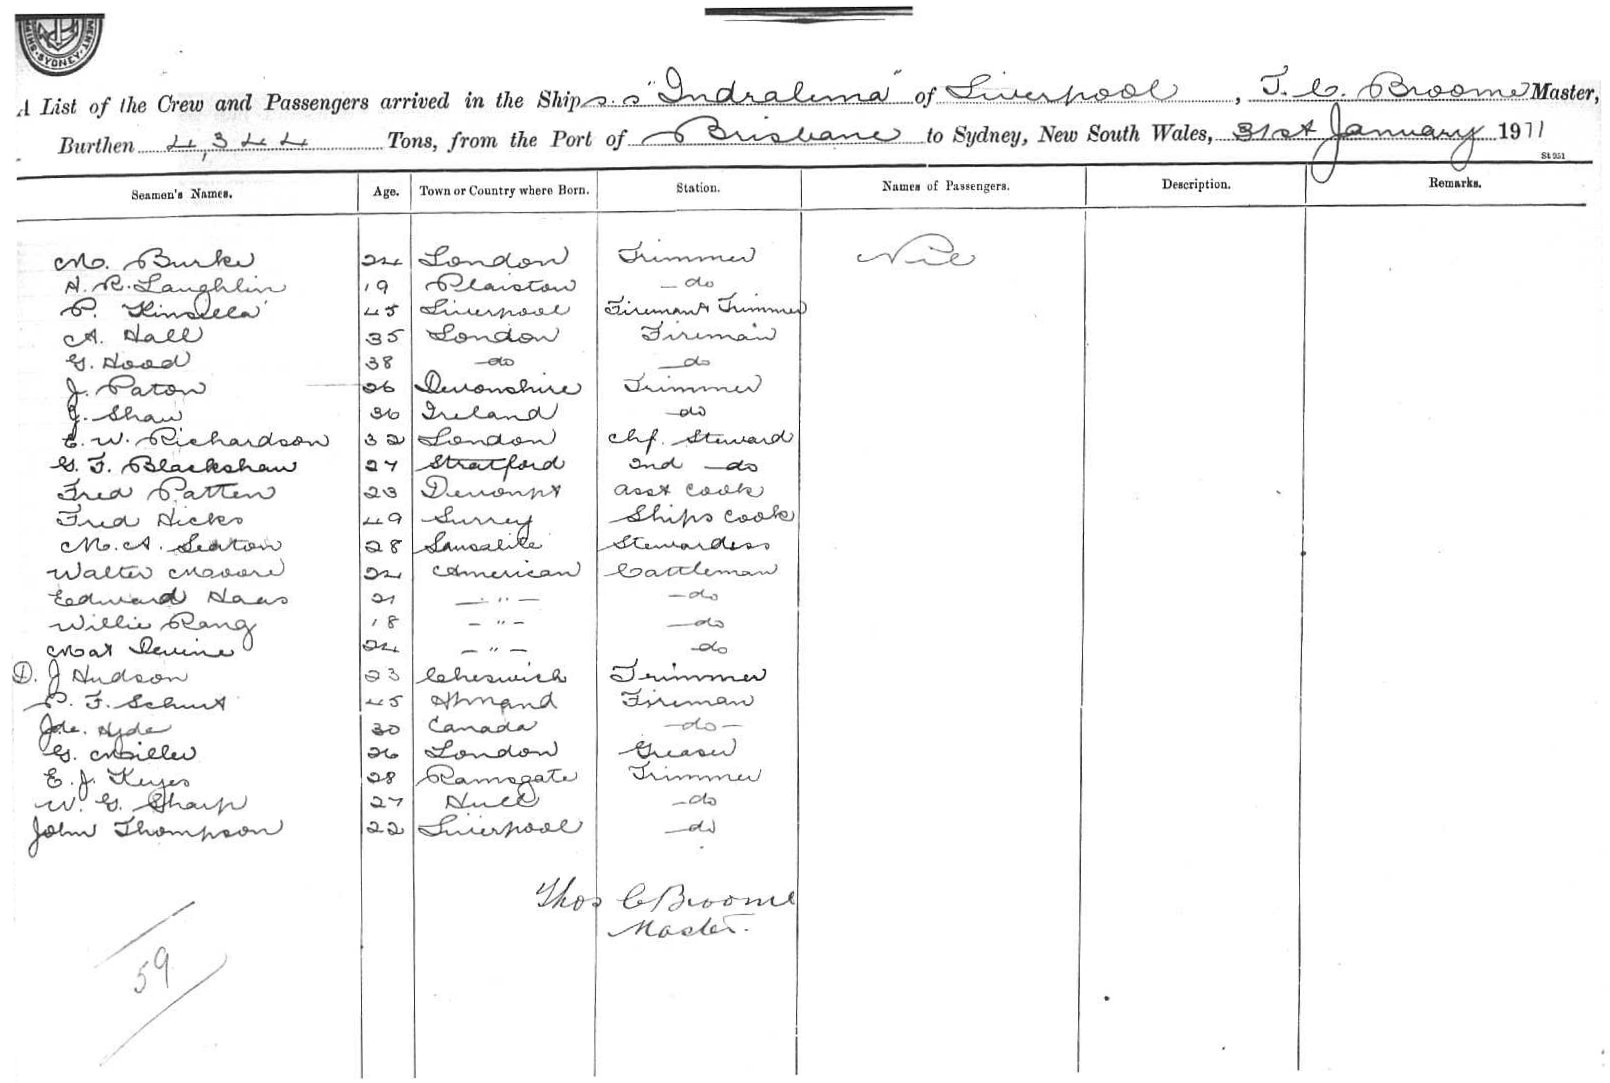 MENT. SYDNEY. SHIP
A List of the Crew and Passengers arrived in the Ship s.s "Indralema" of Liverpool, T. C. Broome Master,
Burthen 4,344 Tons, from the Port of Brisbane to Sydney, New South Wales, 31st January 1911
St 951
Seamen's Names. Age. Town or Country where Born. Station. Names of Passengers. Description. Remarks.
M. Burke 24 London Trimmer Nil
A. R. Laughlin 19 Plaistow - do
P. Kinsella 45 Liverpool Fireman & Trimmer
A. Hall 35 London Fireman
G. Hood 38 - do - do
J. Paton 26 Devonshire Trimmer
J. Shaw 36 Ireland - do
E. W. Richardson 32 London chf. Steward
G. F. Blackshaw 27 Stratford 2nd - do
Fred Patten 23 Devonpt asst cook
Fred Hicks 49 Surrey Ships cook
M. A. Seaton 28 Stewardess
Walter Moore 22 American Cattleman
Edward Haas 21 - " - - do
Willie Rang 18 - " - - do
Mat Devine 24 - " - - do
D. J Hudson 23 Cheswick Trimmer
P. F. 45 Fireman
Joe. Hyde 30 Canada - do -
G. Miller 26 London Greaser
E. J. Keyes 28 Ramsgate Trimmer
W. G. Sharp 27 Hull - do
John Thompson 22 Liverpool - do
Thos C Broome
Master.
59